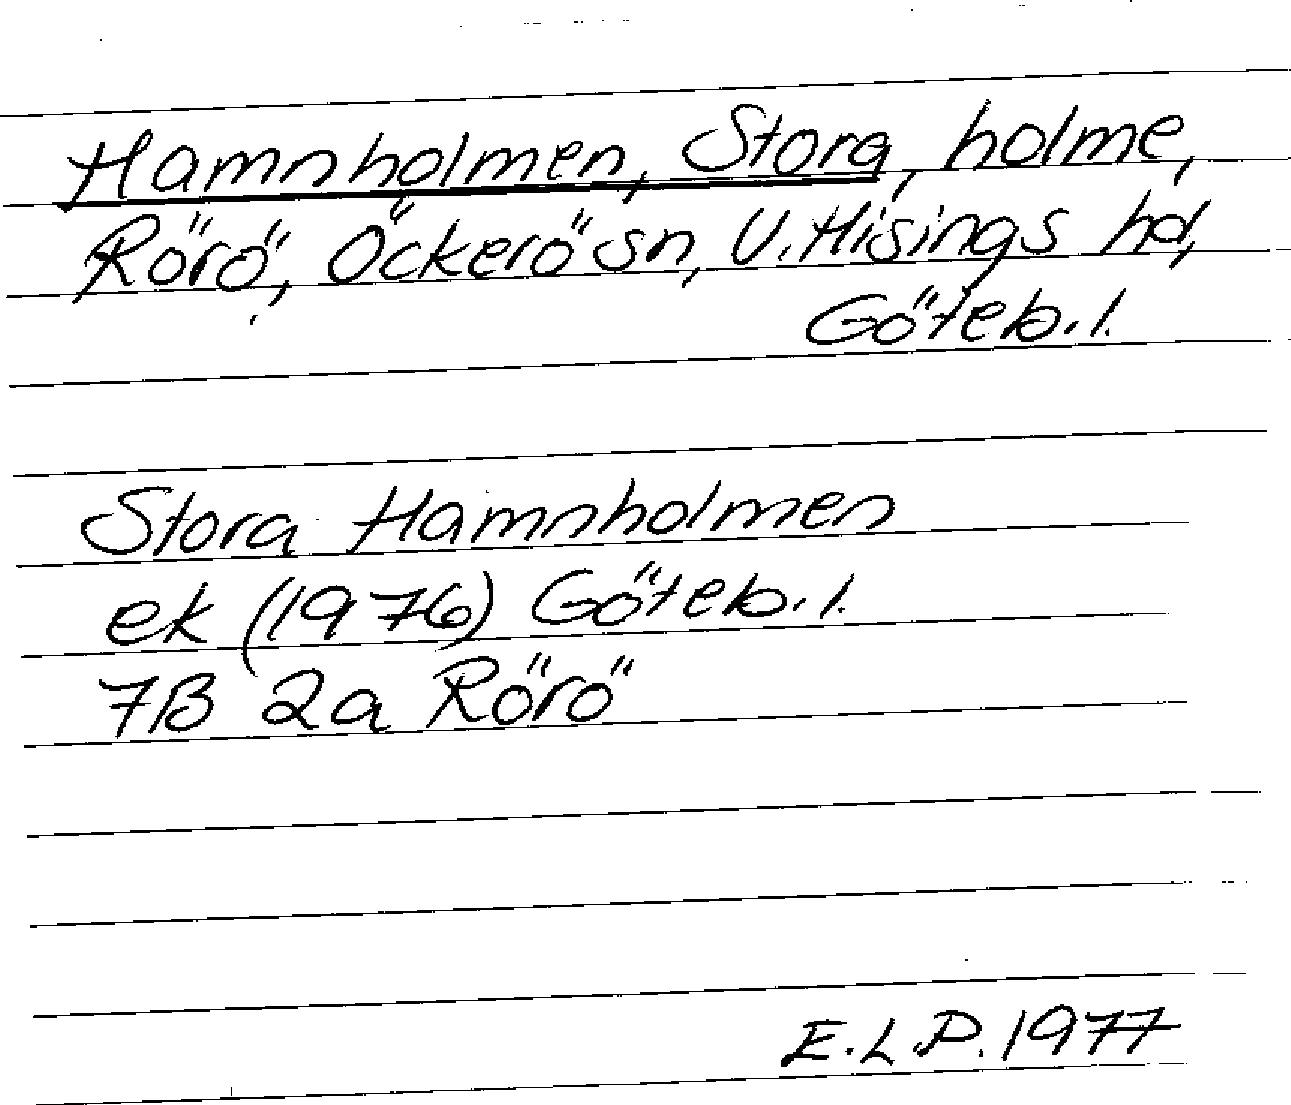 Hamnholmen, Stora, holme,
Rörö, Öckerö sn, V. Hisings hd,
Göteb. l.
Stora Hamnholmen
ek (1976) Göteb. l.
7B 2a Rörö
E.L.P. 1977